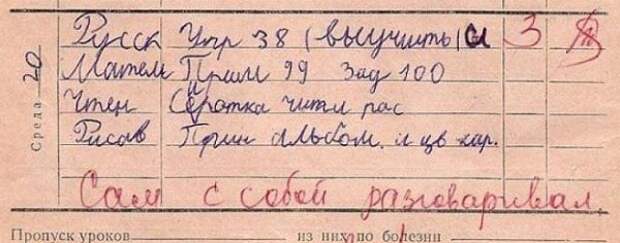 Среда 20
Русск Упр 38 (выучить) 3
Матем Прим 99 Зад 100
Чтен Сиротка читат рас
Рисов Прин альбом. и цв кар.
Сам с собой разговаривал.
Пропуск уроков из них по болезни